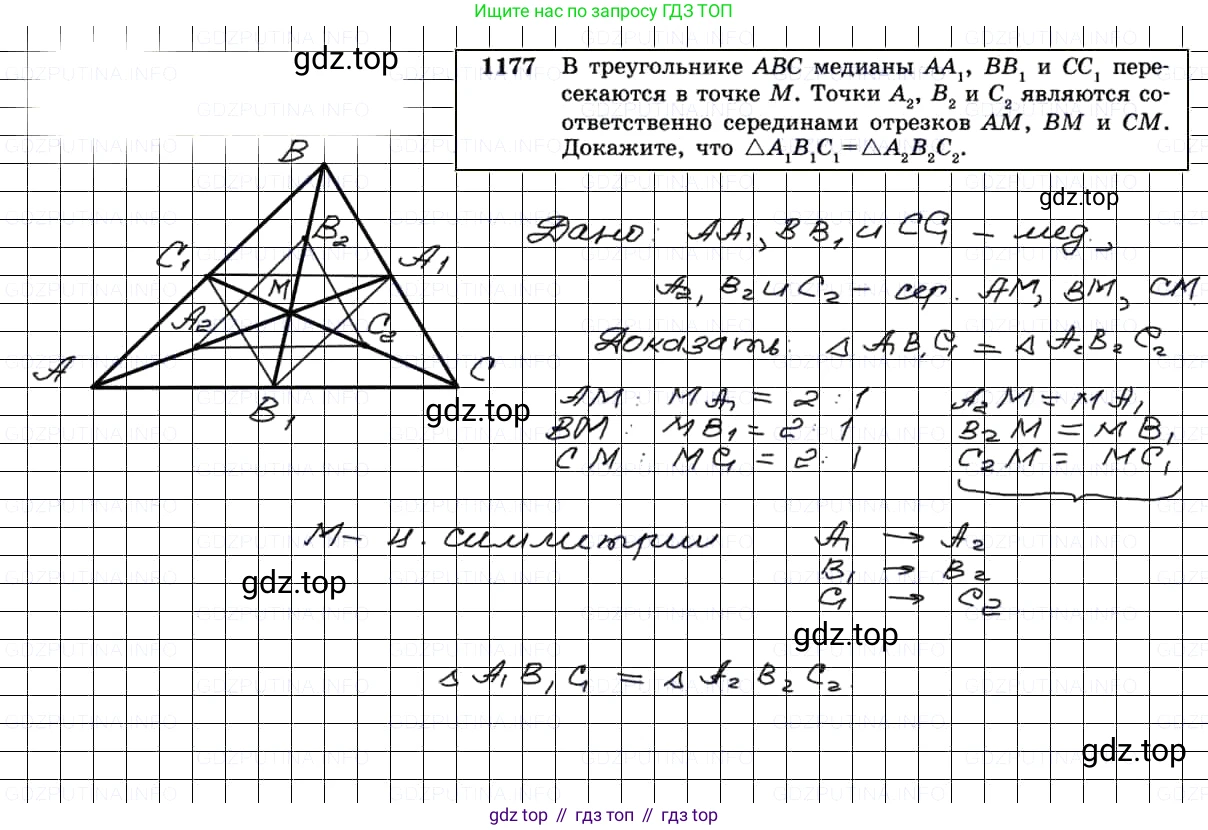 Ищите нас по запросу ГДЗ ТОП
gdz.top
1177 В треугольнике ABC медианы AA₁, BB₁ и CC₁ пере-
секаются в точке M. Точки A₂, B₂ и C₂ являются со-
ответственно серединами отрезков AM, BM и CM.
Докажите, что △A₁B₁C₁=△A₂B₂C₂.
gdz.top
B
B₂
C₁
A₁
M
A₂
C₂
A
C
B₁
Дано: AA₁, BB₁ и CC₁ – мед.,
A₂, B₂ и C₂ – сер. AM, BM, CM
Доказать: △ A₁B₁C₁ = △ A₂B₂C₂
AM : MA₁ = 2 : 1 A₂M = MA₁
gdz.top
BM : MB₁ = 2 : 1 B₂M = MB₁
CM : MC₁ = 2 : 1 C₂M = MC₁
M – ц. симметрии A₁ → A₂
gdz.top
B₁ → B₂
C₁ → C₂
gdz.top
△ A₁B₁C₁ = △ A₂B₂C₂.
gdz.top
gdz.top // гдз топ // гдз top
GDZPUTINA.INFO